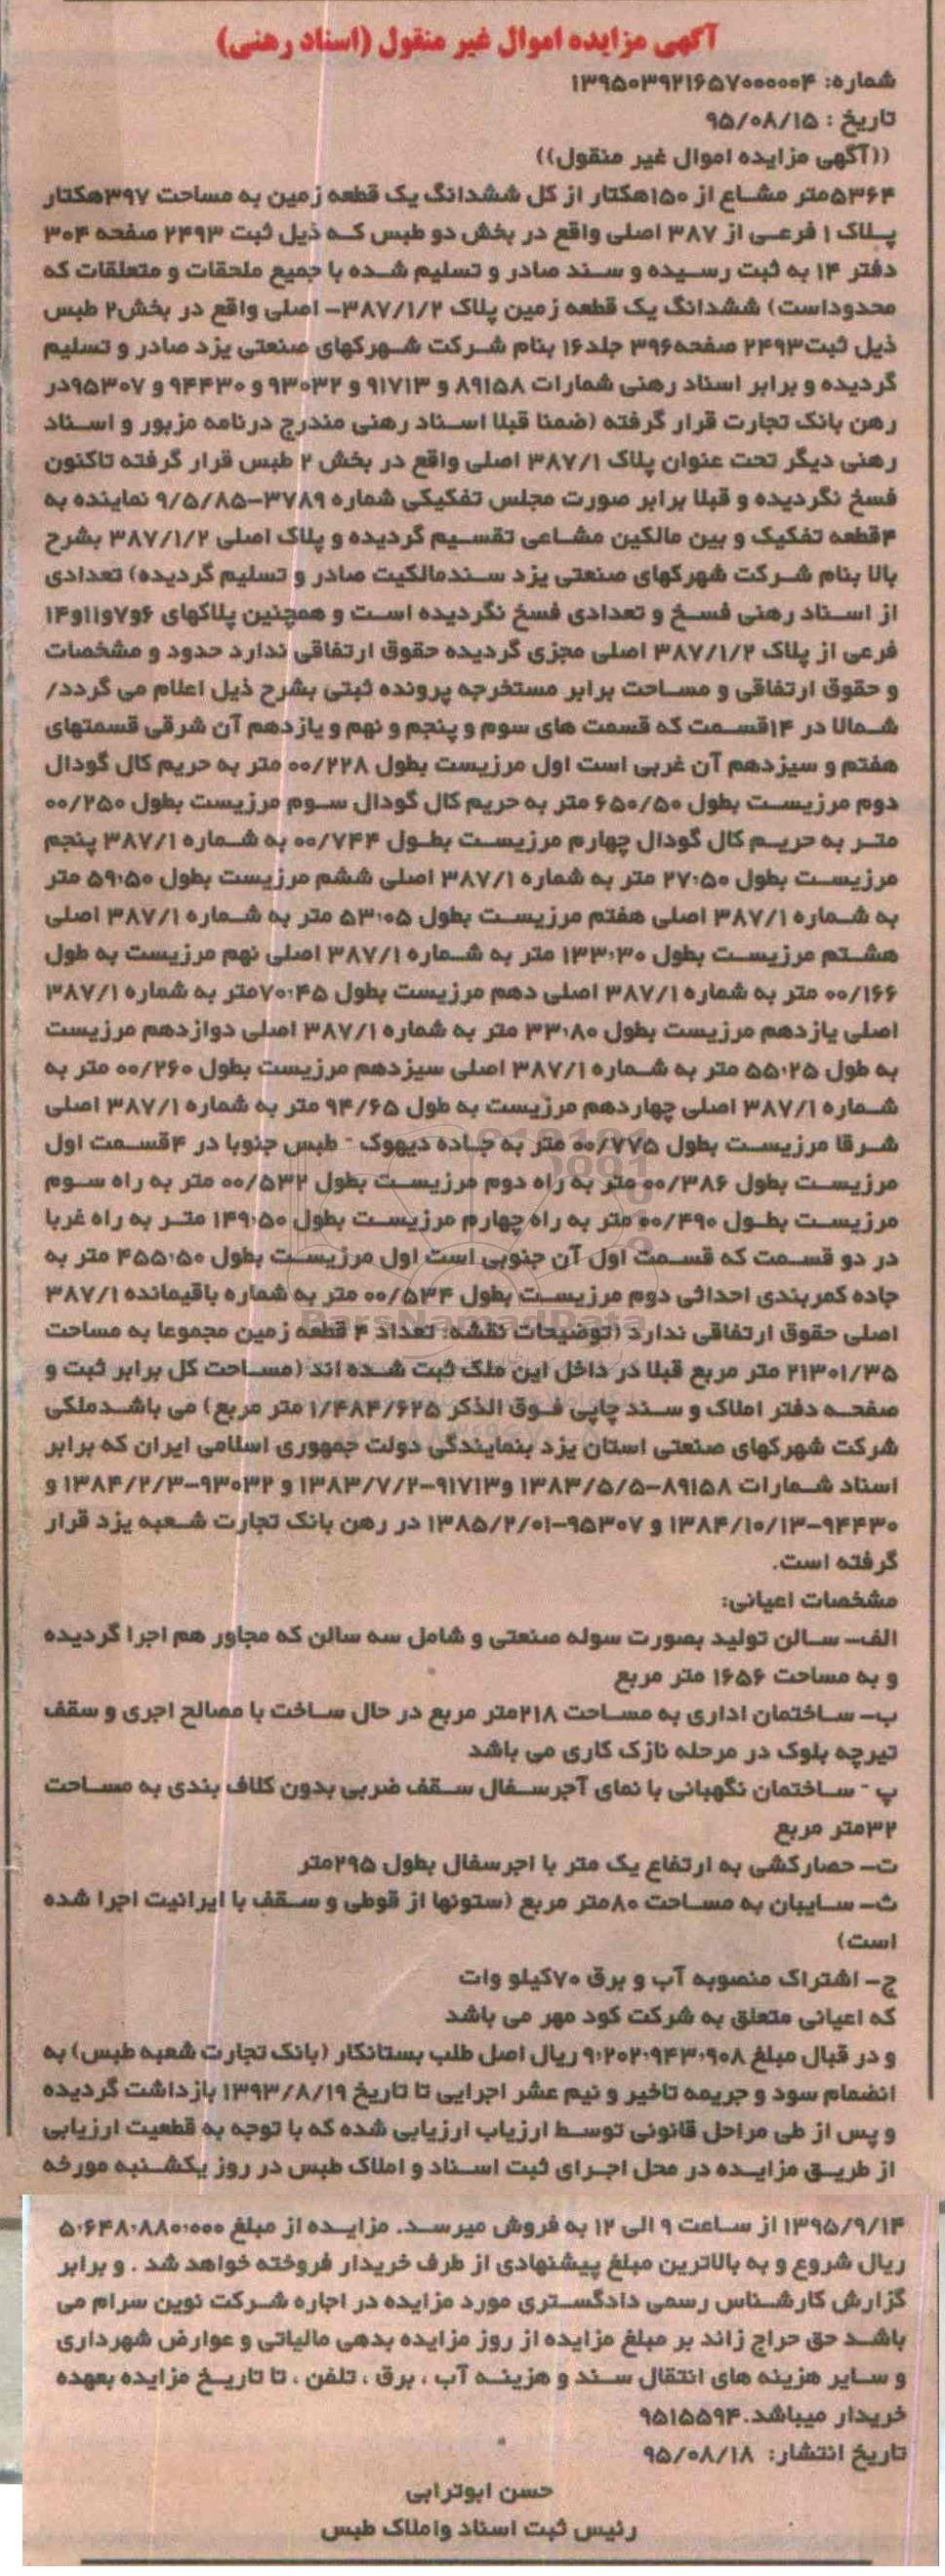 آگهی مزایده اموال غیر منقول (اسناد رهنی)
شماره: ۱۳۹۵۰۳۹۲۱۶۵۷۰۰۰۰۰۴
تاریخ : ۹۵/۰۸/۱۵
((آگهی مزایده اموال غیر منقول))
۵۳۶۴متر مشاع از ۱۵۰هکتار از کل ششدانگ یک قطعه زمین به مساحت ۳۹۷هکتار
پلاک ۱ فرعی از ۳۸۷ اصلی واقع در بخش دو طبس که ذیل ثبت ۲۴۹۳ صفحه ۳۰۴
دفتر ۱۴ به ثبت رسیده و سند صادر و تسلیم شده با جمیع ملحقات و متعلقات که
محدوداست) ششدانگ یک قطعه زمین پلاک ۳۸۷/۱/۲- اصلی واقع در بخش۲ طبس
ذیل ثبت۲۴۹۳ صفحه۳۹۶ جلد۱۶ بنام شرکت شهرکهای صنعتی یزد صادر و تسلیم
گردیده و برابر اسناد رهنی شمارات ۸۹۱۵۸ و ۹۱۷۱۳ و ۹۳۰۳۲ و ۹۴۴۳۰ و ۹۵۳۰۷در
رهن بانک تجارت قرار گرفته (ضمنا قبلا اسناد رهنی مندرج درنامه مزبور و اسناد
رهنی دیگر تحت عنوان پلاک ۳۸۷/۱ اصلی واقع در بخش ۲ طبس قرار گرفته تاکنون
فسخ نگردیده و قبلا برابر صورت مجلس تفکیکی شماره ۳۷۸۹-۹/۵/۸۵ نماینده به
۴قطعه تفکیک و بین مالکین مشاعی تقسیم گردیده و پلاک اصلی ۳۸۷/۱/۲ بشرح
بالا بنام شرکت شهرکهای صنعتی یزد سندمالکیت صادر و تسلیم گردیده) تعدادی
از اسناد رهنی فسخ و تعدادی فسخ نگردیده است و همچنین پلاکهای ۶و۷و۱۱و۱۴
فرعی از پلاک ۳۸۷/۱/۲ اصلی مجزی گردیده حقوق ارتفاقی ندارد حدود و مشخصات
و حقوق ارتفاقی و مساحت برابر مستخرجه پرونده ثبتی بشرح ذیل اعلام می گردد/
شمالا در ۱۴قسمت که قسمت های سوم و پنجم و نهم و یازدهم آن شرقی قسمتهای
هفتم و سیزدهم آن غربی است اول مرزیست بطول ۰۰/۲۲۸ متر به حریم کال گودال
دوم مرزیست بطول ۶۵۰/۵۰ متر به حریم کال گودال سوم مرزیست بطول ۰۰/۲۵۰
متر به حریم کال گودال چهارم مرزیست بطول ۰۰/۷۴۴ به شماره ۳۸۷/۱ پنجم
مرزیست بطول ۲۷،۵۰ متر به شماره ۳۸۷/۱ اصلی ششم مرزیست بطول ۵۹،۵۰ متر
به شماره ۳۸۷/۱ اصلی هفتم مرزیست بطول ۵۳،۰۵ متر به شماره ۳۸۷/۱ اصلی
هشتم مرزیست بطول ۱۳۳،۳۰ متر به شماره ۳۸۷/۱ اصلی نهم مرزیست به طول
۰۰/۱۶۶ متر به شماره ۳۸۷/۱ اصلی دهم مرزیست بطول ۷۰،۴۵متر به شماره ۳۸۷/۱
اصلی یازدهم مرزیست بطول ۳۳،۸۰ متر به شماره ۳۸۷/۱ اصلی دوازدهم مرزیست
به طول ۵۵،۲۵ متر به شماره ۳۸۷/۱ اصلی سیزدهم مرزیست بطول ۰۰/۲۶۰ متر به
شماره ۳۸۷/۱ اصلی چهاردهم مرزیست به طول ۹۴/۶۵ متر به شماره ۳۸۷/۱ اصلی
شرقا مرزیست بطول ۰۰/۷۷۵ متر به جاده دیهوک - طبس جنوبا در ۴قسمت اول
مرزیست بطول ۰۰/۳۸۶ متر به راه دوم مرزیست بطول ۰۰/۵۳۲ متر به راه سوم
مرزیست بطول ۰۰/۴۹۰ متر به راه چهارم مرزیست بطول ۱۴۹،۵۰ متر به راه غربا
در دو قسمت که قسمت اول آن جنوبی است اول مرزیست بطول ۴۵۵،۵۰ متر به
جاده کمربندی احداثی دوم مرزیست بطول ۰۰/۵۳۴ متر به شماره باقیمانده ۳۸۷/۱
اصلی حقوق ارتفاقی ندارد (توضیحات نقشه: تعداد ۴ قطعه زمین مجموعا به مساحت
۲۱۳۰۱/۳۵ متر مربع قبلا در داخل این ملک ثبت شده اند (مساحت کل برابر ثبت و
صفحه دفتر املاک و سند چاپی فوق الذکر ۱/۴۸۴/۶۲۵ متر مربع) می باشدملکی
شرکت شهرکهای صنعتی استان یزد بنمایندگی دولت جمهوری اسلامی ایران که برابر
اسناد شمارات ۸۹۱۵۸-۱۳۸۳/۵/۵ و۹۱۷۱۳-۱۳۸۳/۷/۲ و ۹۳۰۳۲-۱۳۸۴/۲/۳ و
۹۴۴۳۰-۱۳۸۴/۱۰/۱۳ و ۹۵۳۰۷-۱۳۸۵/۲/۰۱ در رهن بانک تجارت شعبه یزد قرار
گرفته است.
مشخصات اعیانی:
الف- سالن تولید بصورت سوله صنعتی و شامل سه سالن که مجاور هم اجرا گردیده
و به مساحت ۱۶۵۶ متر مربع
ب- ساختمان اداری به مساحت ۲۱۸متر مربع در حال ساخت با مصالح اجری و سقف
تیرچه بلوک در مرحله نازک کاری می باشد
پ - ساختمان نگهبانی با نمای آجرسفال سقف ضربی بدون کلاف بندی به مساحت
۳۲متر مربع
ت- حصارکشی به ارتفاع یک متر با اجرسفال بطول ۲۹۵متر
ث- سایبان به مساحت ۸۰متر مربع (ستونها از قوطی و سقف با ایرانیت اجرا شده
است)
ج- اشتراک منصوبه آب و برق ۷۰کیلو وات
که اعیانی متعلق به شرکت کود مهر می باشد
و در قبال مبلغ ۹،۲۰۲،۹۴۳،۹۰۸ ریال اصل طلب بستانکار (بانک تجارت شعبه طبس) به
انضمام سود و جریمه تاخیر و نیم عشر اجرایی تا تاریخ ۱۳۹۳/۸/۱۹ بازداشت گردیده
و پس از طی مراحل قانونی توسط ارزیاب ارزیابی شده که با توجه به قطعیت ارزیابی
از طریق مزایده در محل اجرای ثبت اسناد و املاک طبس در روز یکشنبه مورخه
۱۳۹۵/۹/۱۴ از ساعت ۹ الی ۱۲ به فروش میرسد. مزایده از مبلغ ۵،۶۴۸،۸۸۰،۰۰۰
ریال شروع و به بالاترین مبلغ پیشنهادی از طرف خریدار فروخته خواهد شد . و برابر
گزارش کارشناس رسمی دادگستری مورد مزایده در اجاره شرکت نوین سرام می
باشد حق حراج زائد بر مبلغ مزایده از روز مزایده بدهی مالیاتی و عوارض شهرداری
و سایر هزینه های انتقال سند و هزینه آب ، برق ، تلفن ، تا تاریخ مزایده بعهده
خریدار میباشد.۹۵۱۵۵۹۴
تاریخ انتشار: ۹۵/۰۸/۱۸
حسن ابوترابی
رئیس ثبت اسناد واملاک طبس